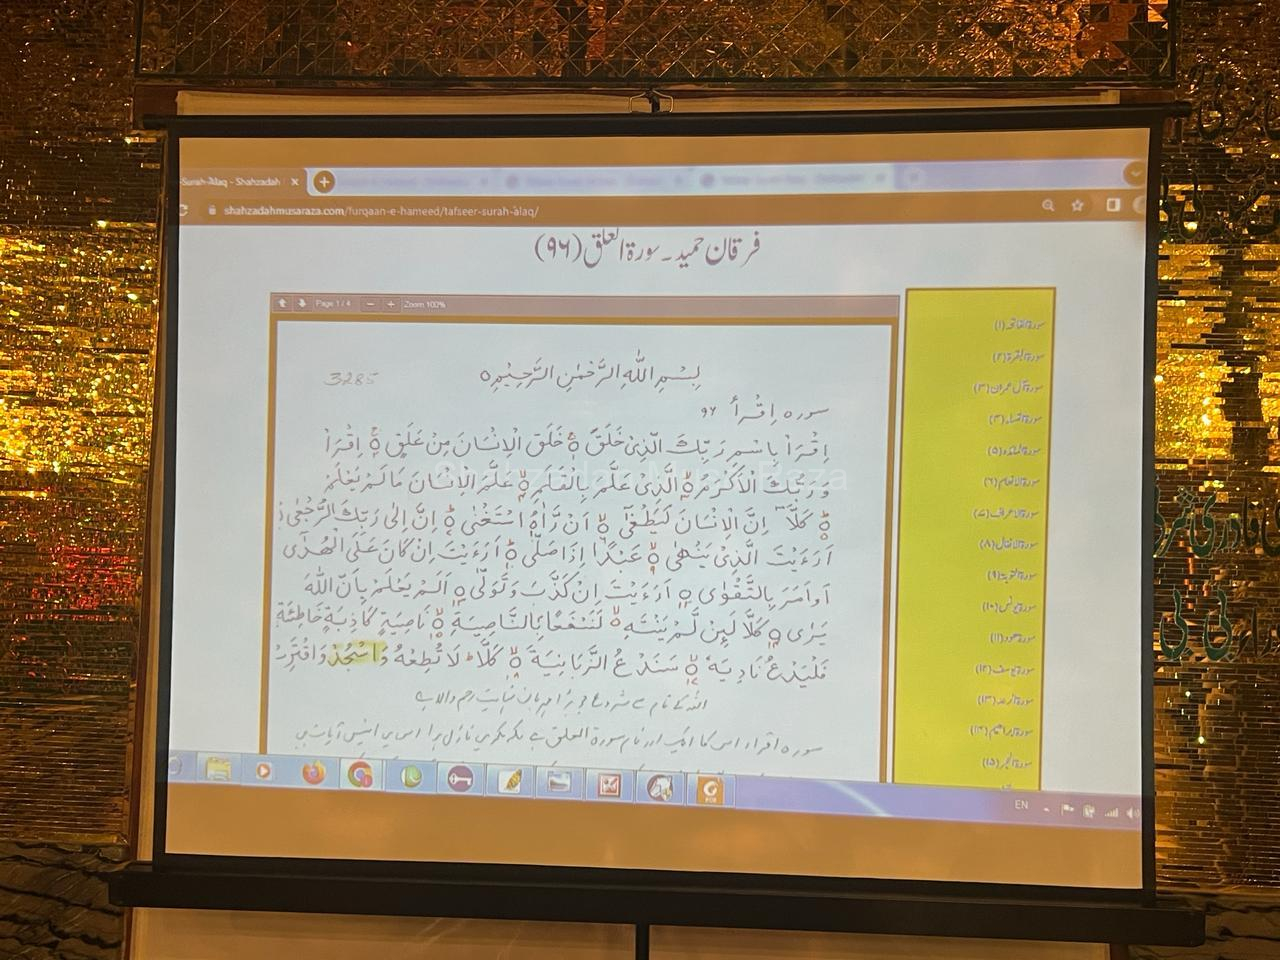 Surah-'Alaq - Shahzadah
shahzadahmusaraza.com/furqaan-e-hameed/tafseer-surah-'alaq/
فرقان حمید ۔ سورۃ العلق (۹۶)
Page 1 / 4 Zoom 100%
بِسْمِ اللّٰهِ الرَّحْمٰنِ الرَّحِيْمِ
3285
سورہ اِقْرَأ ۹۶
اِقْرَاْ بِاسْمِ رَبِّكَ الَّذِىْ خَلَقَ خَلَقَ الْاِنْسَانَ مِنْ عَلَقٍ اِقْرَاْ
وَرَبُّكَ الْاَكْرَمُ الَّذِىْ عَلَّمَ بِالْقَلَمِ عَلَّمَ الْاِنْسَانَ مَا لَمْ يَعْلَمْ
كَلَّآ اِنَّ الْاِنْسَانَ لَيَطْغٰٓى اَنْ رَّاٰهُ اسْتَغْنٰى اِنَّ اِلٰى رَبِّكَ الرُّجْعٰى
اَرَءَيْتَ الَّذِىْ يَنْهٰى عَبْدًا اِذَا صَلّٰى اَرَءَيْتَ اِنْ كَانَ عَلَى الْهُدٰٓى
اَوْ اَمَرَ بِالتَّقْوٰى اَرَءَيْتَ اِنْ كَذَّبَ وَتَوَلّٰى اَلَمْ يَعْلَمْ بِاَنَّ اللّٰهَ
يَرٰى كَلَّا لَئِنْ لَّمْ يَنْتَهِ لَنَسْفَعًا بِالنَّاصِيَةِ نَاصِيَةٍ كَاذِبَةٍ خَاطِئَةٍ
فَلْيَدْعُ نَادِيَهٗ سَنَدْعُ الزَّبَانِيَةَ كَلَّا لَا تُطِعْهُ وَاسْجُدْ وَاقْتَرِبْ
اللہ کے نام سے شروع جو بڑا مہربان نہایت رحم والا ہے
سورہ اقراء اس کا ایک اور نام سورۃ العلق ہے
Shahzadah Musa Raza
سورۃ الفاتحہ (۱)
سورۃ البقرۃ (۲)
سورۃ آل عمران (۳)
سورۃ النساء (۴)
سورۃ المائدہ (۵)
سورۃ الانعام (۶)
سورۃ الاعراف (۷)
سورۃ الانفال (۸)
سورۃ التوبۃ (۹)
سورۃ یونس (۱۰)
سورۃ ھود (۱۱)
سورۃ یوسف (۱۲)
سورۃ الرعد (۱۳)
سورۃ ابراھیم (۱۴)
سورۃ الحجر (۱۵)
EN